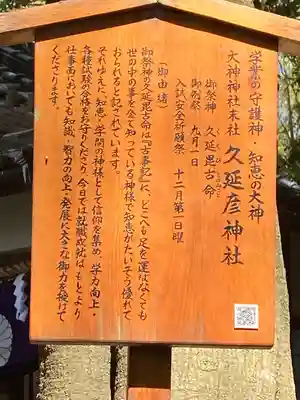 学業の守護神・知恵の大神
大神神社末社 久延彦神社
くえひこ
御祭神 久延毘古命
くえひこのみこと
御例祭 九月一日
入試安全祈願祭 十二月第一日曜
（御由緒）
御祭神の久延毘古命は『古事記』に、どこへも足を運ばなくても
世の中の事を全て知っている神様で知恵がたいそう優れて
おられると記されています。
それゆえに、知恵・学問の神様として信仰を集め、学力向上・
各種試験の合格をお守りくださり、今日では就職成就はもとより
仕事面においても知識、智力の向上・発展に大きな御力を授けて
くださります。